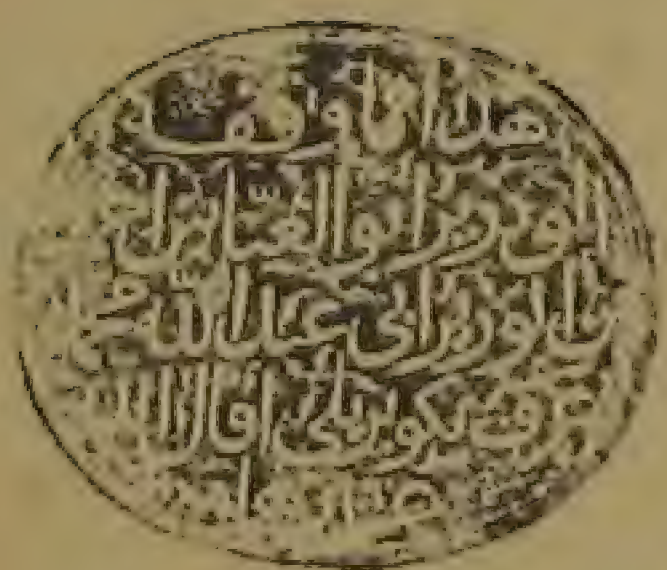 هذا ما وقف
الوزير ابو العباس
بن الوزير ابى عبد الله محمد
عرف بكوبريلى اقال الله